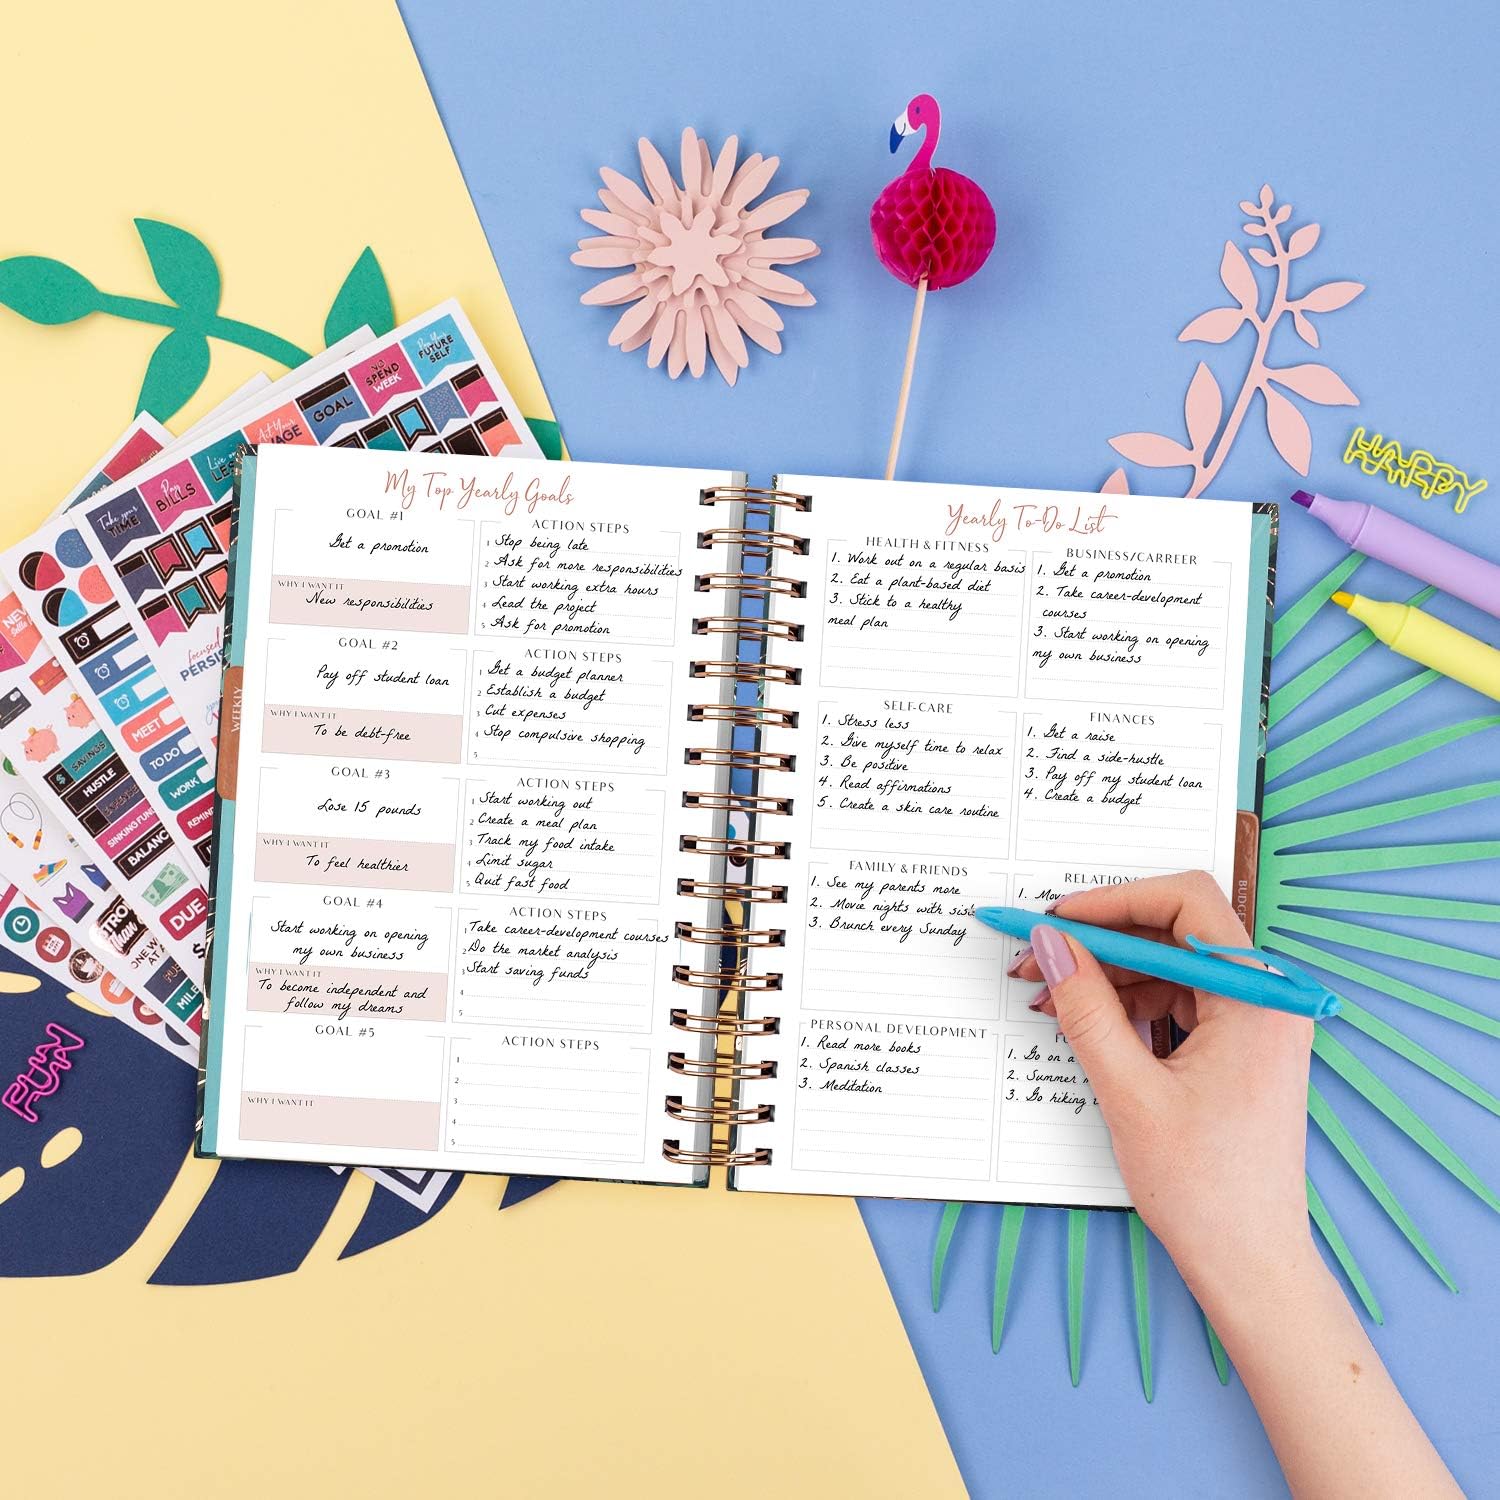 My Top Yearly Goals
GOAL #1
Get a promotion
WHY I WANT IT
New responsibilities
ACTION STEPS
1 Stop being late
2 Ask for more responsibilities
3 Start working extra hours
4 Lead the project
5 Ask for promotion
GOAL #2
Pay off student loan
WHY I WANT IT
To be debt-free
ACTION STEPS
1 Get a budget planner
2 Establish a budget
3 Cut expenses
4 Stop compulsive shopping
5
GOAL #3
Lose 15 pounds
WHY I WANT IT
To feel healthier
ACTION STEPS
1 Start working out
2 Create a meal plan
3 Track my food intake
4 Limit sugar
5 Quit fast food
GOAL #4
Start working on opening
my own business
WHY I WANT IT
To become independent and
follow my dreams
ACTION STEPS
1 Take career-development courses
2 Do the market analysis
3 Start saving funds
4
5
GOAL #5
WHY I WANT IT
ACTION STEPS
1
2
3
4
5
Yearly To-Do List
HEALTH & FITNESS
1. Work out on a regular basis
2. Eat a plant-based diet
3. Stick to a healthy
meal plan
BUSINESS/CARREER
1. Get a promotion
2. Take career-development
courses
3. Start working on opening
my own business
SELF-CARE
1. Stress less
2. Give myself time to relax
3. Be positive
4. Read affirmations
5. Create a skin care routine
FINANCES
1. Get a raise
2. Find a side-hustle
3. Pay off my student loan
4. Create a budget
FAMILY & FRIENDS
1. See my parents more
2. Movie nights with
3. Brunch every Sunday
1.
PERSONAL DEVELOPMENT
1. Read more books
2. Spanish classes
3. Meditation
1. Go on a
2. Summer
3. Go hiking
WEEKLY
HAPPY
FUN
FUTURE
SELF
NO
SPEND
WEEK
GOAL
Pay
BILLS
Take your
TIME
focused
MEET
TO DO
WORK
SAVINGS
HUSTLE
EXPENSE
SINKING
DUE
NEW